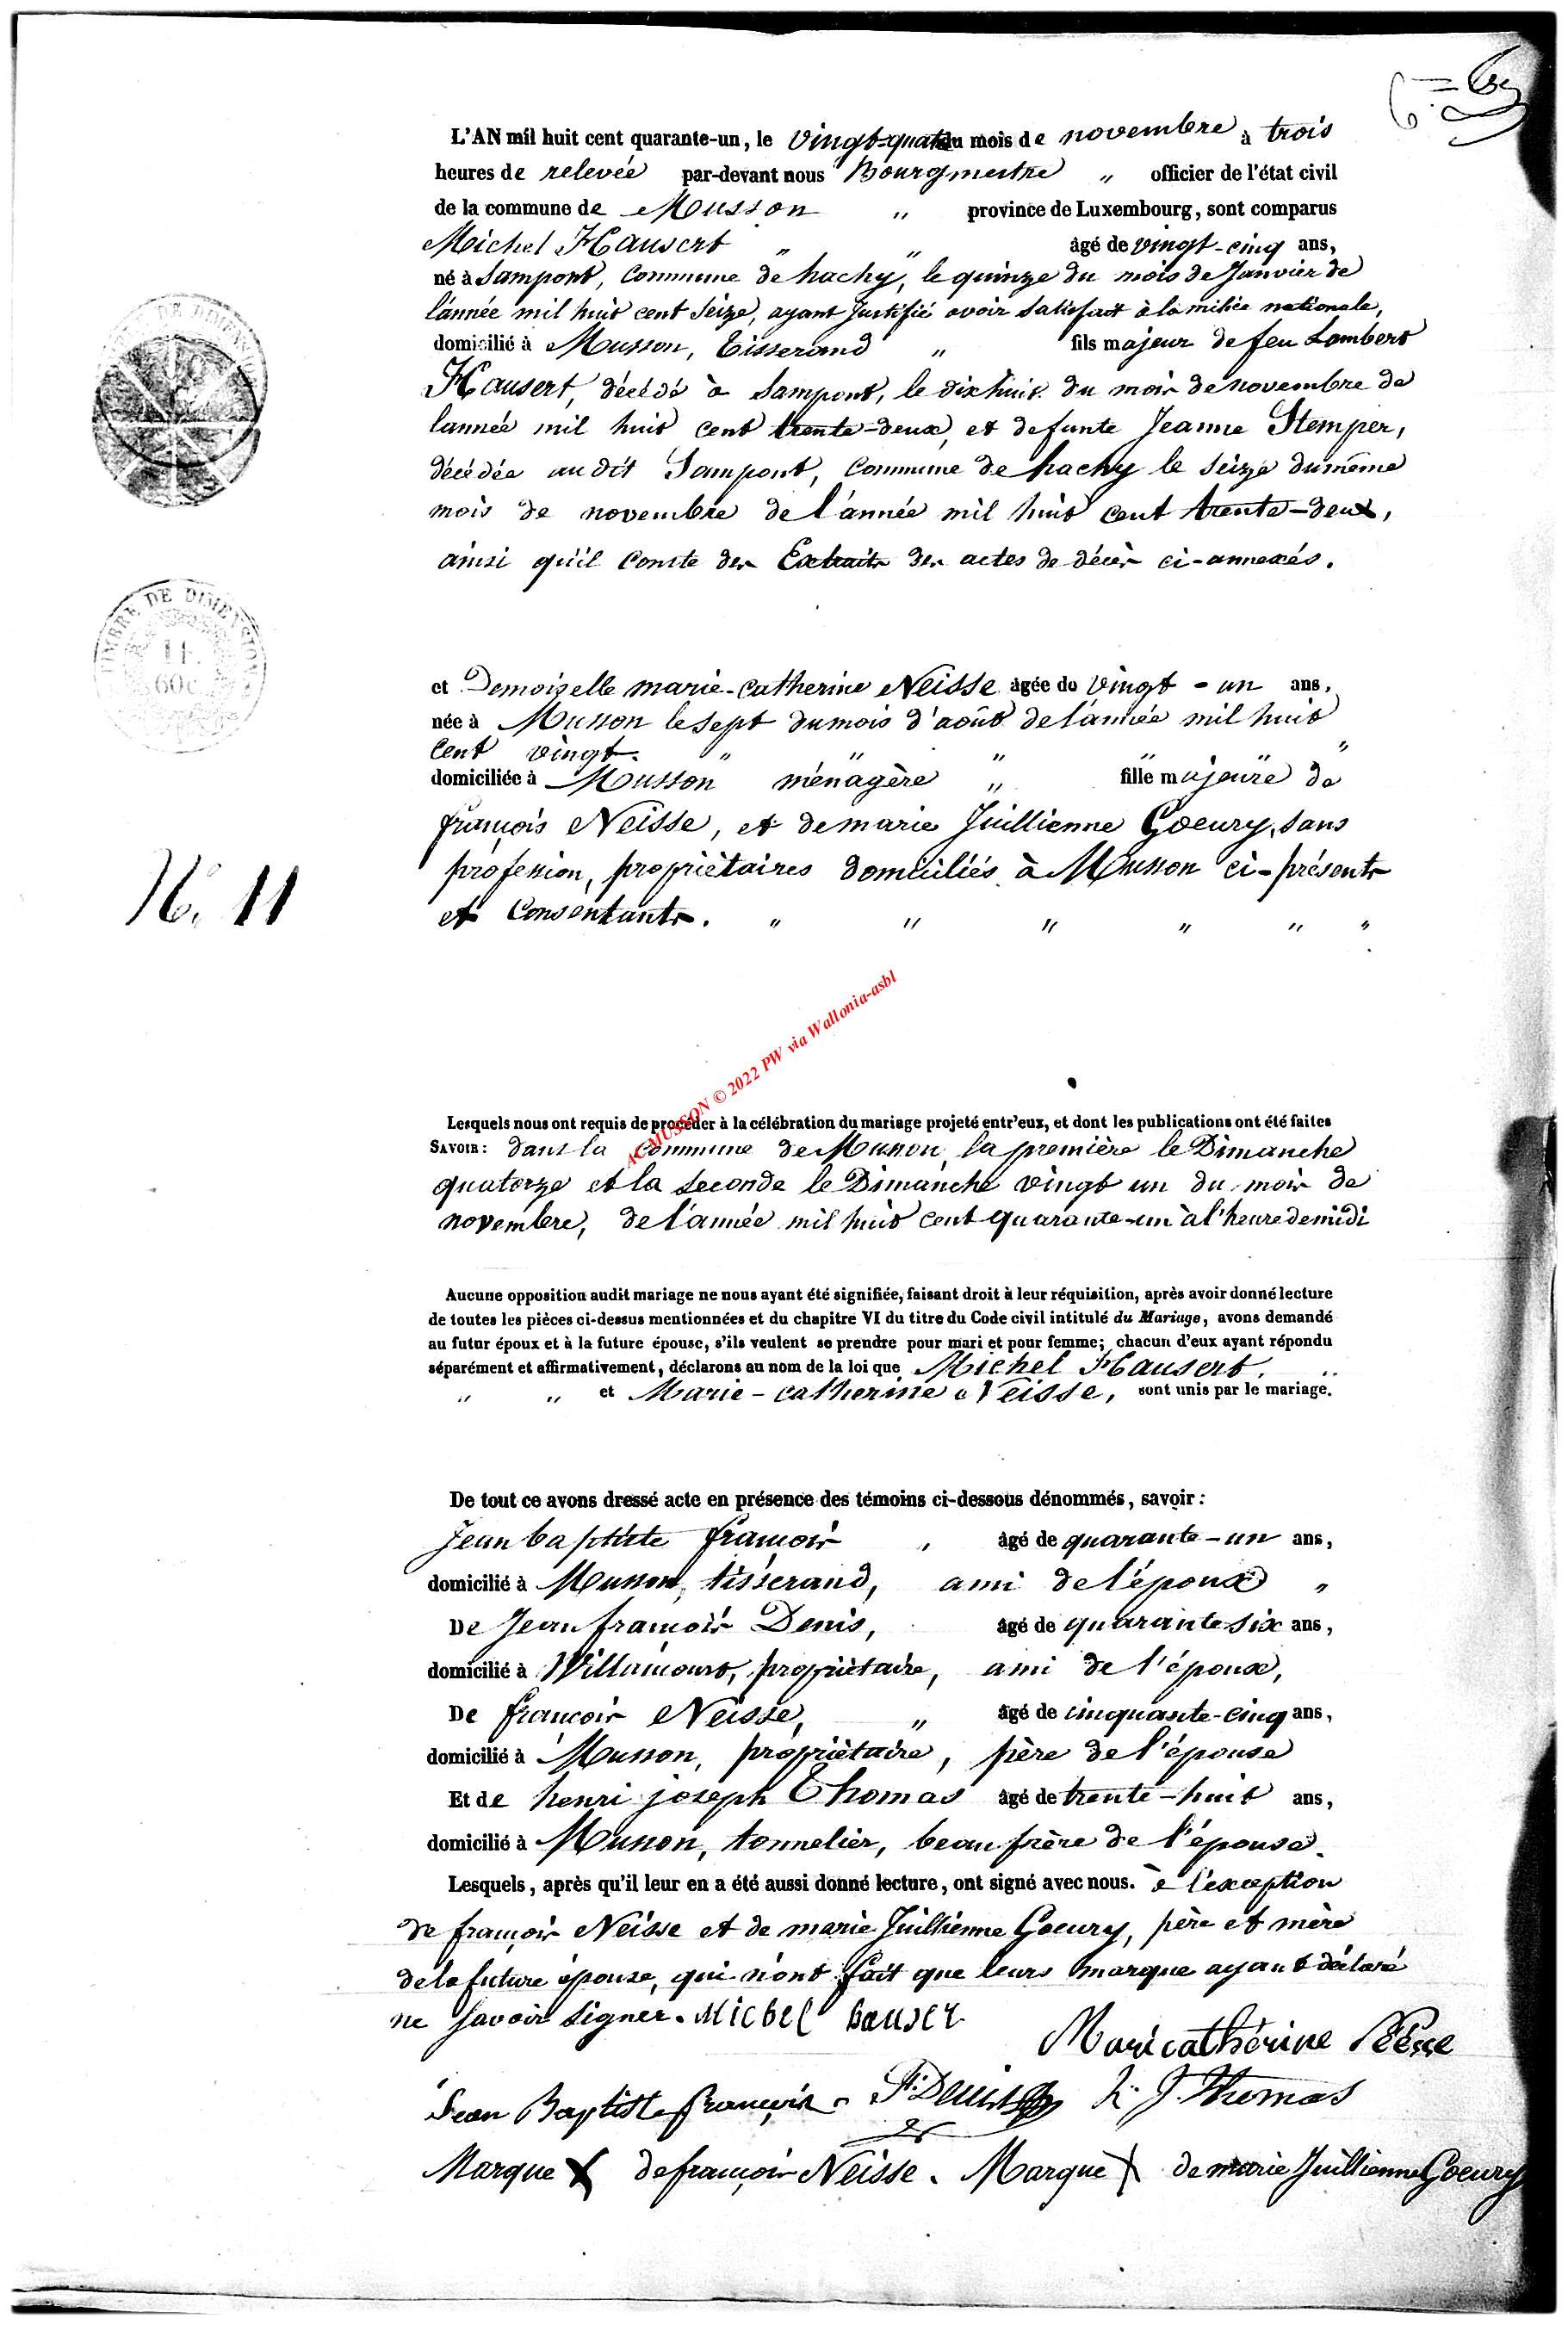 L'AN mil huit cent quarante-un, le vingt-quatre du mois de novembre à trois
heures de relevée par-devant nous Bourgmestre " officier de l'état civil
de la commune de Musson " province de Luxembourg, sont comparus
Michel Hausert " " âgé de vingt-cinq ans,
né à Sampont, commune de hachy, le quinze du mois de Janvier de
l'année mil huit cent seize, ayant Justifié avoir satisfait à la milice nationale,
domicilié à Musson, Tisserand " fils majeur de feu Lambert
Hausert, décédé à Sampont, le dix huit du mois de novembre de
lannée mil huit cent trente-deux, et defunte Jeanne Stemper,
décédée audit Sampont, commune de hachy le seize du même
mois de novembre de l'année mil huit cent trente-deux,
ainsi qu'il conste des Extraits des actes de décès ci-annexés.
TIMBRE DE DIMENSION
60c
et Demoiselle marie-catherine Neisse âgée de vingt-un ans,
née à Musson le sept du mois d'août de l'année mil huit
cent vingt. " " " " "
domiciliée à Musson ménagère " fille majeure de
françois Neisse, et de marie Juillienne Goeury, sans
profession, propriétaires domiciliés à Musson ci-présents
et consentants. " " " " " "
N. 11
ACMUSSON © 2022 PW via Wallonia-asbl
Lesquels nous ont requis de procéder à la célébration du mariage projeté entr'eux, et dont les publications ont été faites
SAVOIR: dans la commune de Musson, la première le Dimanche
quatorze et la seconde le Dimanche vingt un du mois de
novembre, de l'année mil huit cent quarante-un à l'heure de midi
Aucune opposition audit mariage ne nous ayant été signifiée, faisant droit à leur réquisition, après avoir donné lecture
de toutes les pièces ci-dessus mentionnées et du chapitre VI du titre du Code civil intitulé du Mariage, avons demandé
au futur époux et à la future épouse, s'ils veulent se prendre pour mari et pour femme; chacun d'eux ayant répondu
séparément et affirmativement, déclarons au nom de la loi que Michel Hausert. "
" " et Marie-catherine Neisse, sont unis par le mariage.
De tout ce avons dressé acte en présence des témoins ci-dessous dénommés, savoir:
Jean baptiste françois , âgé de quarante-un ans,
domicilié à Musson, tisserand, ami de l'époux "
De Jean françois Denis, âgé de quarante six ans,
domicilié à Willancourt, propriétaire, ami de l'époux,
De françois Neisse, " âgé de cinquante-cinq ans,
domicilié à Musson, propriétaire, père de l'épouse
Et de henri joseph Thomas âgé de trente-huit ans,
domicilié à Musson, tonnelier, beau frère de l'épouse.
Lesquels, après qu'il leur en a été aussi donné lecture, ont signé avec nous. à l'exception
de françois Neisse et de marie Juillienne Goeury, père et mère
de la future épouse, qui n'ont fait que leurs marque ayant déclaré
ne savoir signer. Michel hauser
Maricathérine
Jean Baptiste françois J: Denis h. J. Thomas
Marque X de françois Neisse. Marque X de marie Juillienne Goeury